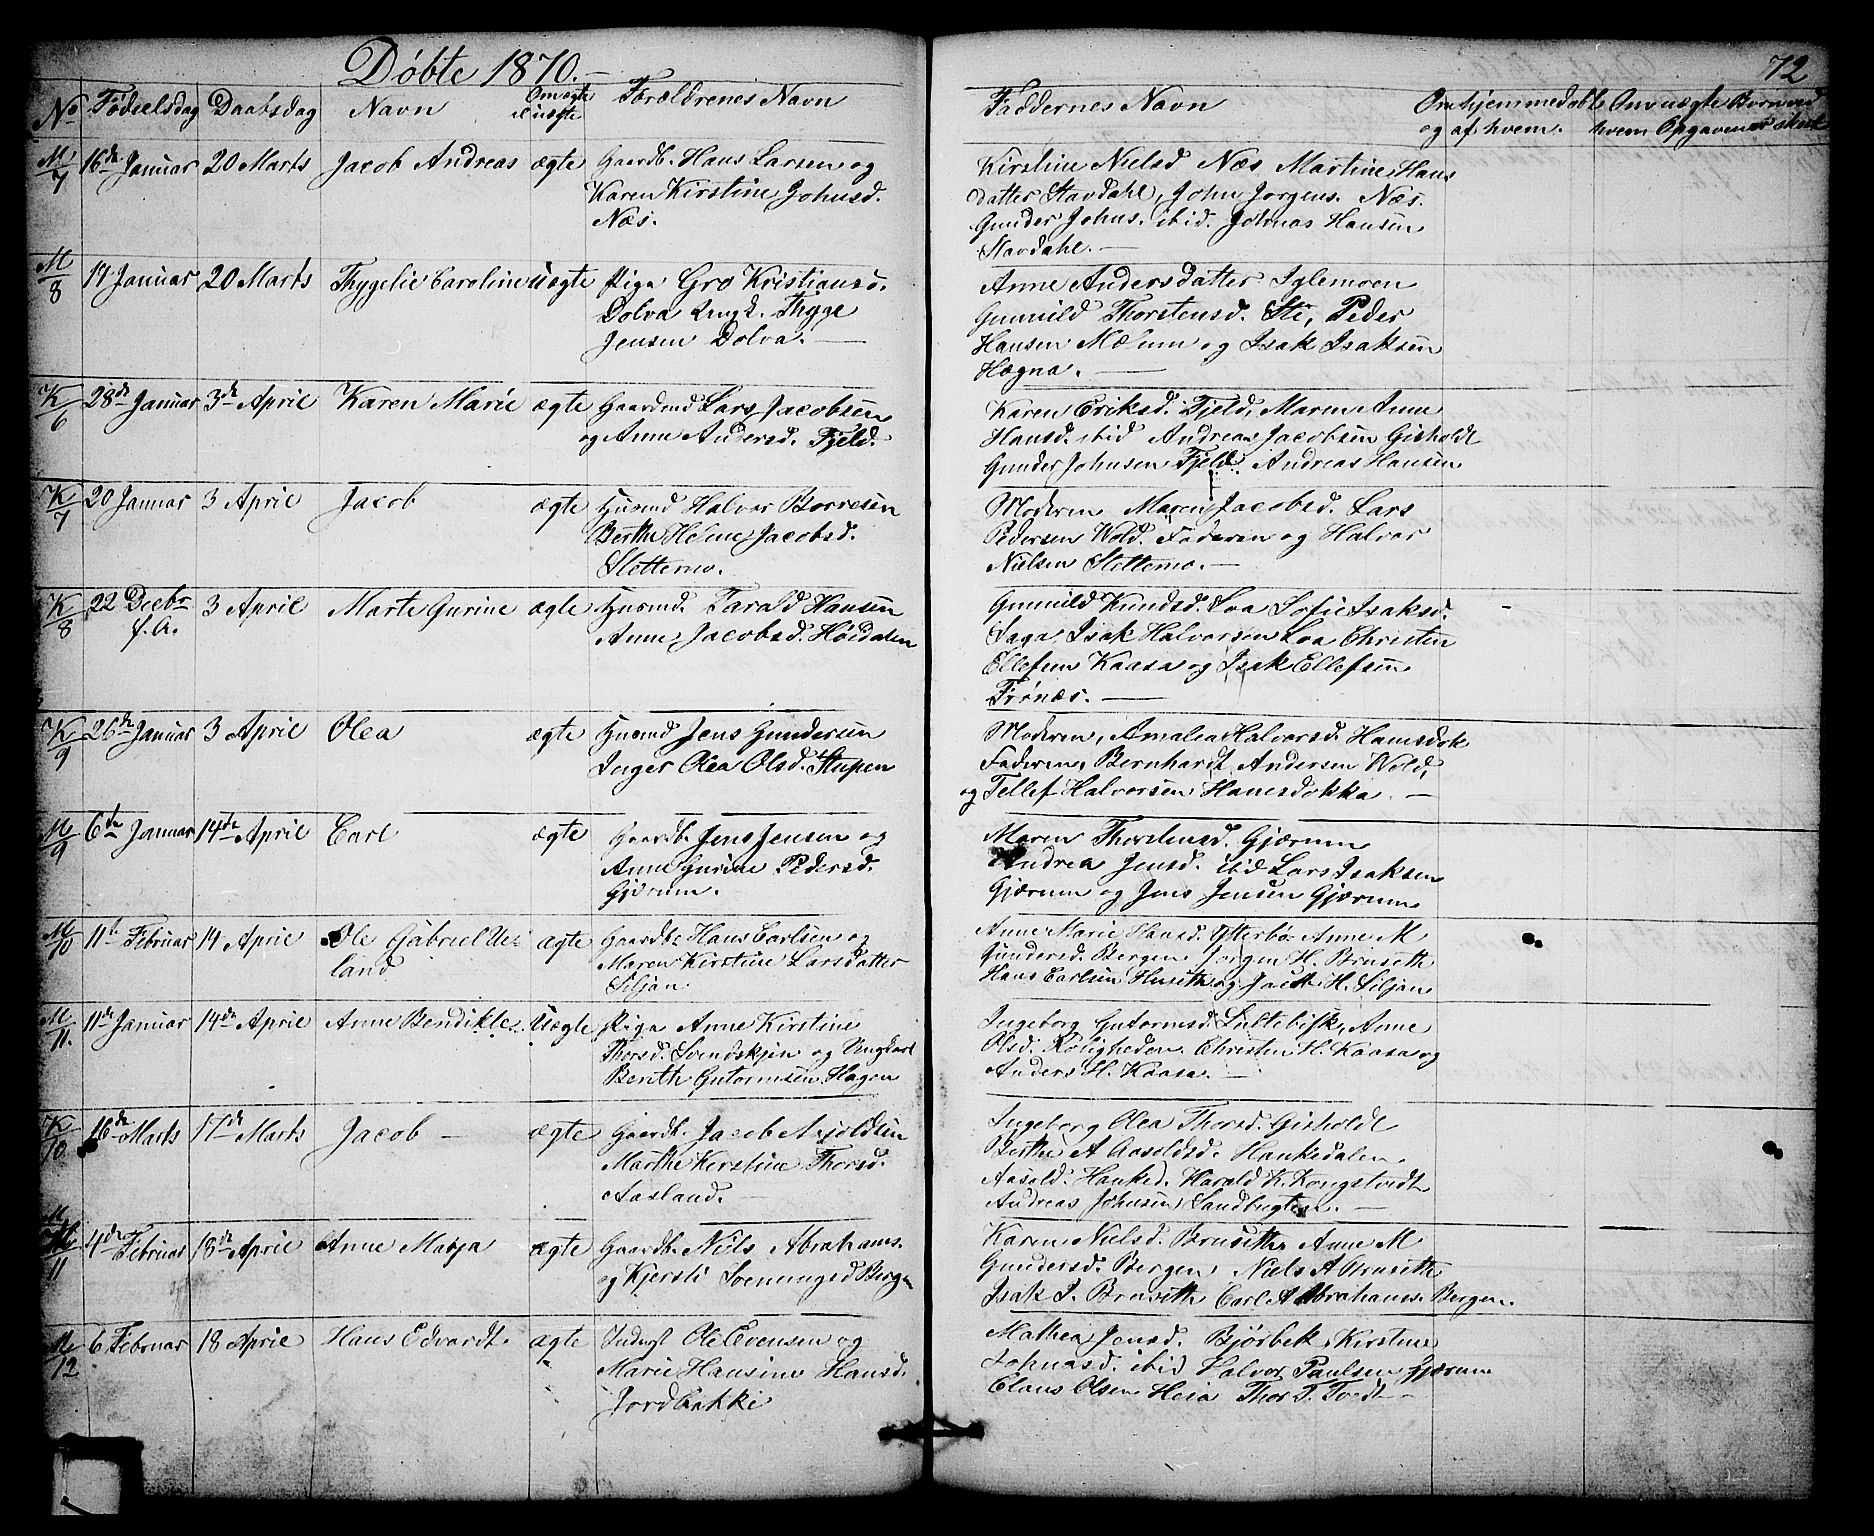 Døbte 1870.
72
No Fødselsdag Daabsdag Navn Om ægte el uægte Forældrenes Navn
Faddernes Navn Om hjemmedøbt og af hvem. Om uægte Børn ved hvem Opgaven er skeet
M/7 16de Januar 20 Marts Jacob Andreas ægte Gaardb. Hans Larsen og
Karen Kirstine Johnsd.
Næs.
Kirstine Nielsd Næs Martine Hans
datter Stavdahl, John Jørgens. Næs.
Gunder Johns. ibid. Johnas Hansen
Stavdahl. —
M/8 17 Januar 20 Marts Thygelie Caroline Uægte Piga Gro Kristiansd.
Dolva Ungk. Thyge
Jensen Dolva. —
Anne Andersdatter Iglemoen
Gunnild Thorstensd. Sti, Peder
Hansen Mælum og Isak Isaksen
Høgna. —
K/6 28de Januar 3de April Karen Marie ægte Gaardmd Lars Jacobsen
og Anne Andersd. Fjeld.
Karen Eriksd. Fjeld, Maren Anne
Hansd. ibid Andreas Jacobsen Gisholdt
Gunder Johnsen Fjeld. Andreas Hansen
K/7 20 Januar 3 April Jacob ægte Husmd Halvor Borresen
Berthe Heline Jacobsd.
Slettemo.
Moderen Maren Jacobsd. Lars
Pedersen Wold. Faderen og Halvor
Nielsen Slettemo. —
K/8 22 Decbr f.A. 3 April Marte Gurine ægte Husmd. Tarald Hansen
Anne Jacobsd. Høidalen
Gunnild Knudsd. Loa Sofie Isaksd.
Saga Isak Halvorsen Loa Christen
Ellefsen Kaasa og Isak Ellefsen
Frønæs. —
K/9 26de Januar 3 April Olea ægte Husmd Jens Gundersen
Inger Olea Olsd. Stupen
Moderen, Amalia Halvorsd. Hansdok
Faderen, Bernhardt Andersen Wold,
og Tellef Halvorsen Hansdokka. —
M/9 6te Januar 14de April Carl ægte Gaardb. Jens Jensen og
Anne Gurine Pedersd.
Gjerum.
Maren Thorstensd. Gjærum
Andrea Jensd. ibid Lars Isaksen
Gjærum og Jens Jensen Gjærum
M/10 11te Februar 14 April Ole Gabriel Ue=
land ægte Gaardb. Hans Carlsen og
Maren Kirstine Larsdatter
Siljan.
Anne Marie Hansd. Ytterbø Anne M
Gundersd. Bergen. Jørgen H. Bruseth
Hans Carlsen Huseth og Jacob H. Siljan
M/11. 11de Januar 14de April Anne Bendikte Uægte Piga Anne Kirstine
Thorsd. Svendskjøn og Ungkarl
Berith Gutormsen Hagen
Ingeborg Gutormsd. Anne
Olsd. Roligheden. Christen H. Kaasa og
Anders H. Kaasa. —
K/10 16de Marts 17de Marts Jacob — ægte Gaardb. Jacob Asjoldsen
Marthe Kirstine Thorsd.
Aasland. —
Ingeborg Olea Thorsd. Gisholdt
Berthe A Aasoldsd. Hankedalen.
Aasold. Hanked. Harald K. Kongstvedt
Andreas Johnsen Sandbugten. —
M/11 4de Februar 18de April Anne Marja ægte Gaardb. Niels Abrahams.
og Kjersti Sveningsd Bergen
Karen Nielsd. Bruseth Anne M
Gundersd. Bergen, Niels A Bruseth
Isak I. Bruseth Carl A Abrahams. Bergen.
M/12 6 Februar 18 April Hans Edvardt. ægte Inderst Ole Evensen og
Marie Hansine Hansd.
Jordbakki
Mathea Jensd. Bjørbek Kirstine
Johnasd. ibid Halvor Paulsen Gjærum
Claus Olsen Heia Thor T. Tvedt